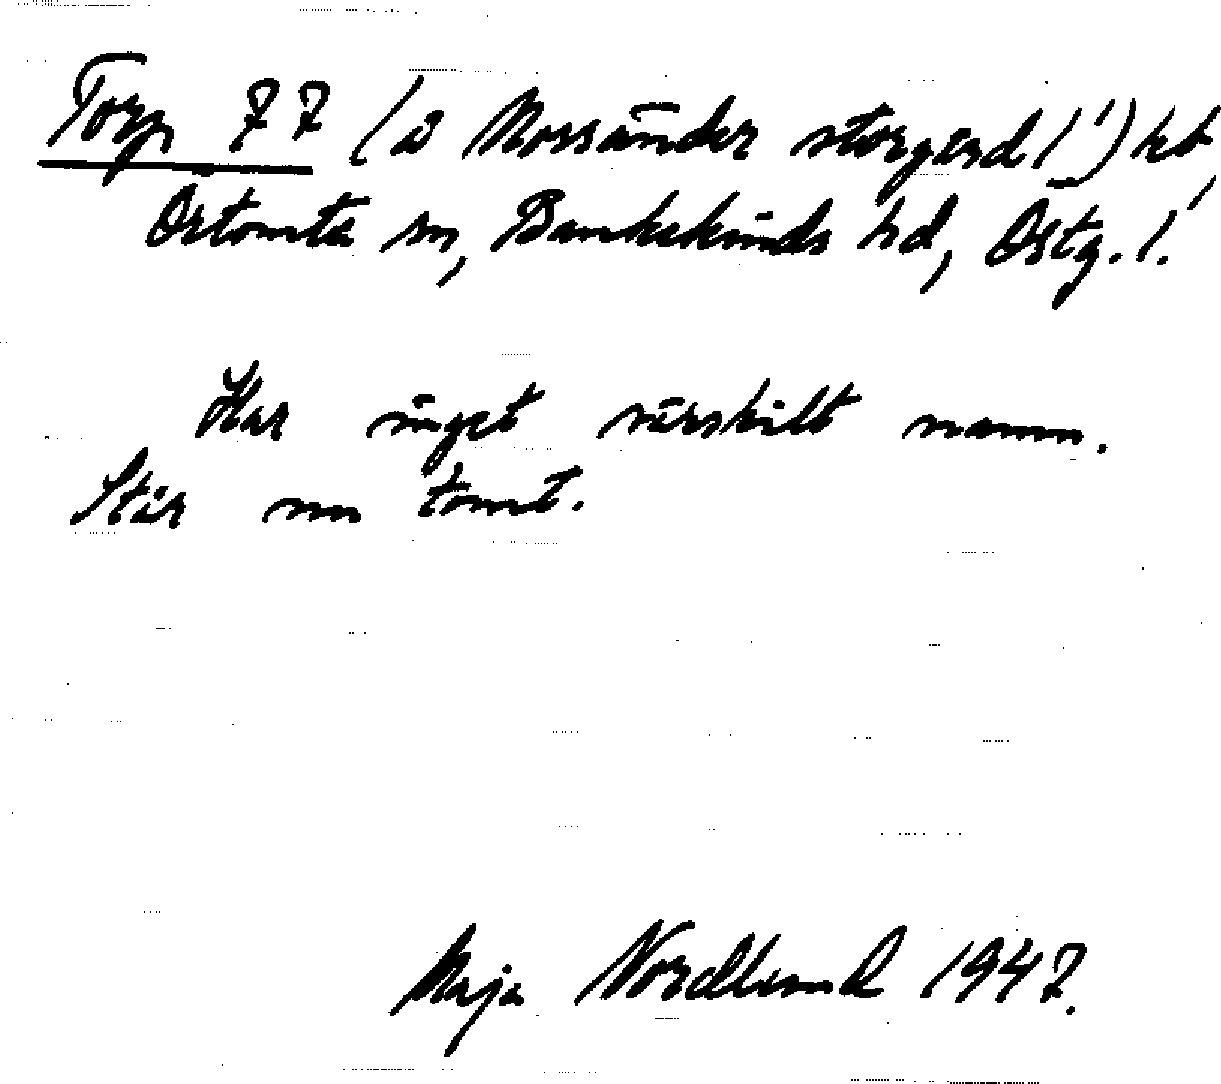 Torp 77 (å Mossänder storgård 1/1) kb
Örtomta sn, Bankekinds hd, Östg. l.
Har inget särskilt namn.
Står nu tomt.
Maja Nordlund 1947.